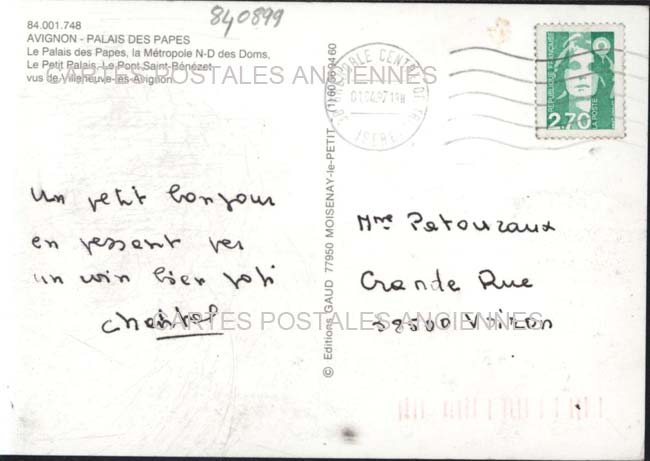 840899
84.001.748
AVIGNON - PALAIS DES PAPES
Le Palais des Papes, la Métropole N-D des Doms,
Le Petit Palais, Le Pont Saint-Bénézet
vus de Villeneuve-lès-Avignon
CARTES POSTALES ANCIENNES
Un petit bonjour
en passant par
un coin bien joli
Chantal
© Editions GAUD 77950 MOISENAY-le-PETIT (1) 60669460
38 GRENOBLE CENTRE
01.04.97 19H
ISERE
REPUBLIQUE FRANÇAISE
LA POSTE
2,70
Mme Patouraux
Grande Rue
38500 Voiron
CARTES POSTALES ANCIENNES